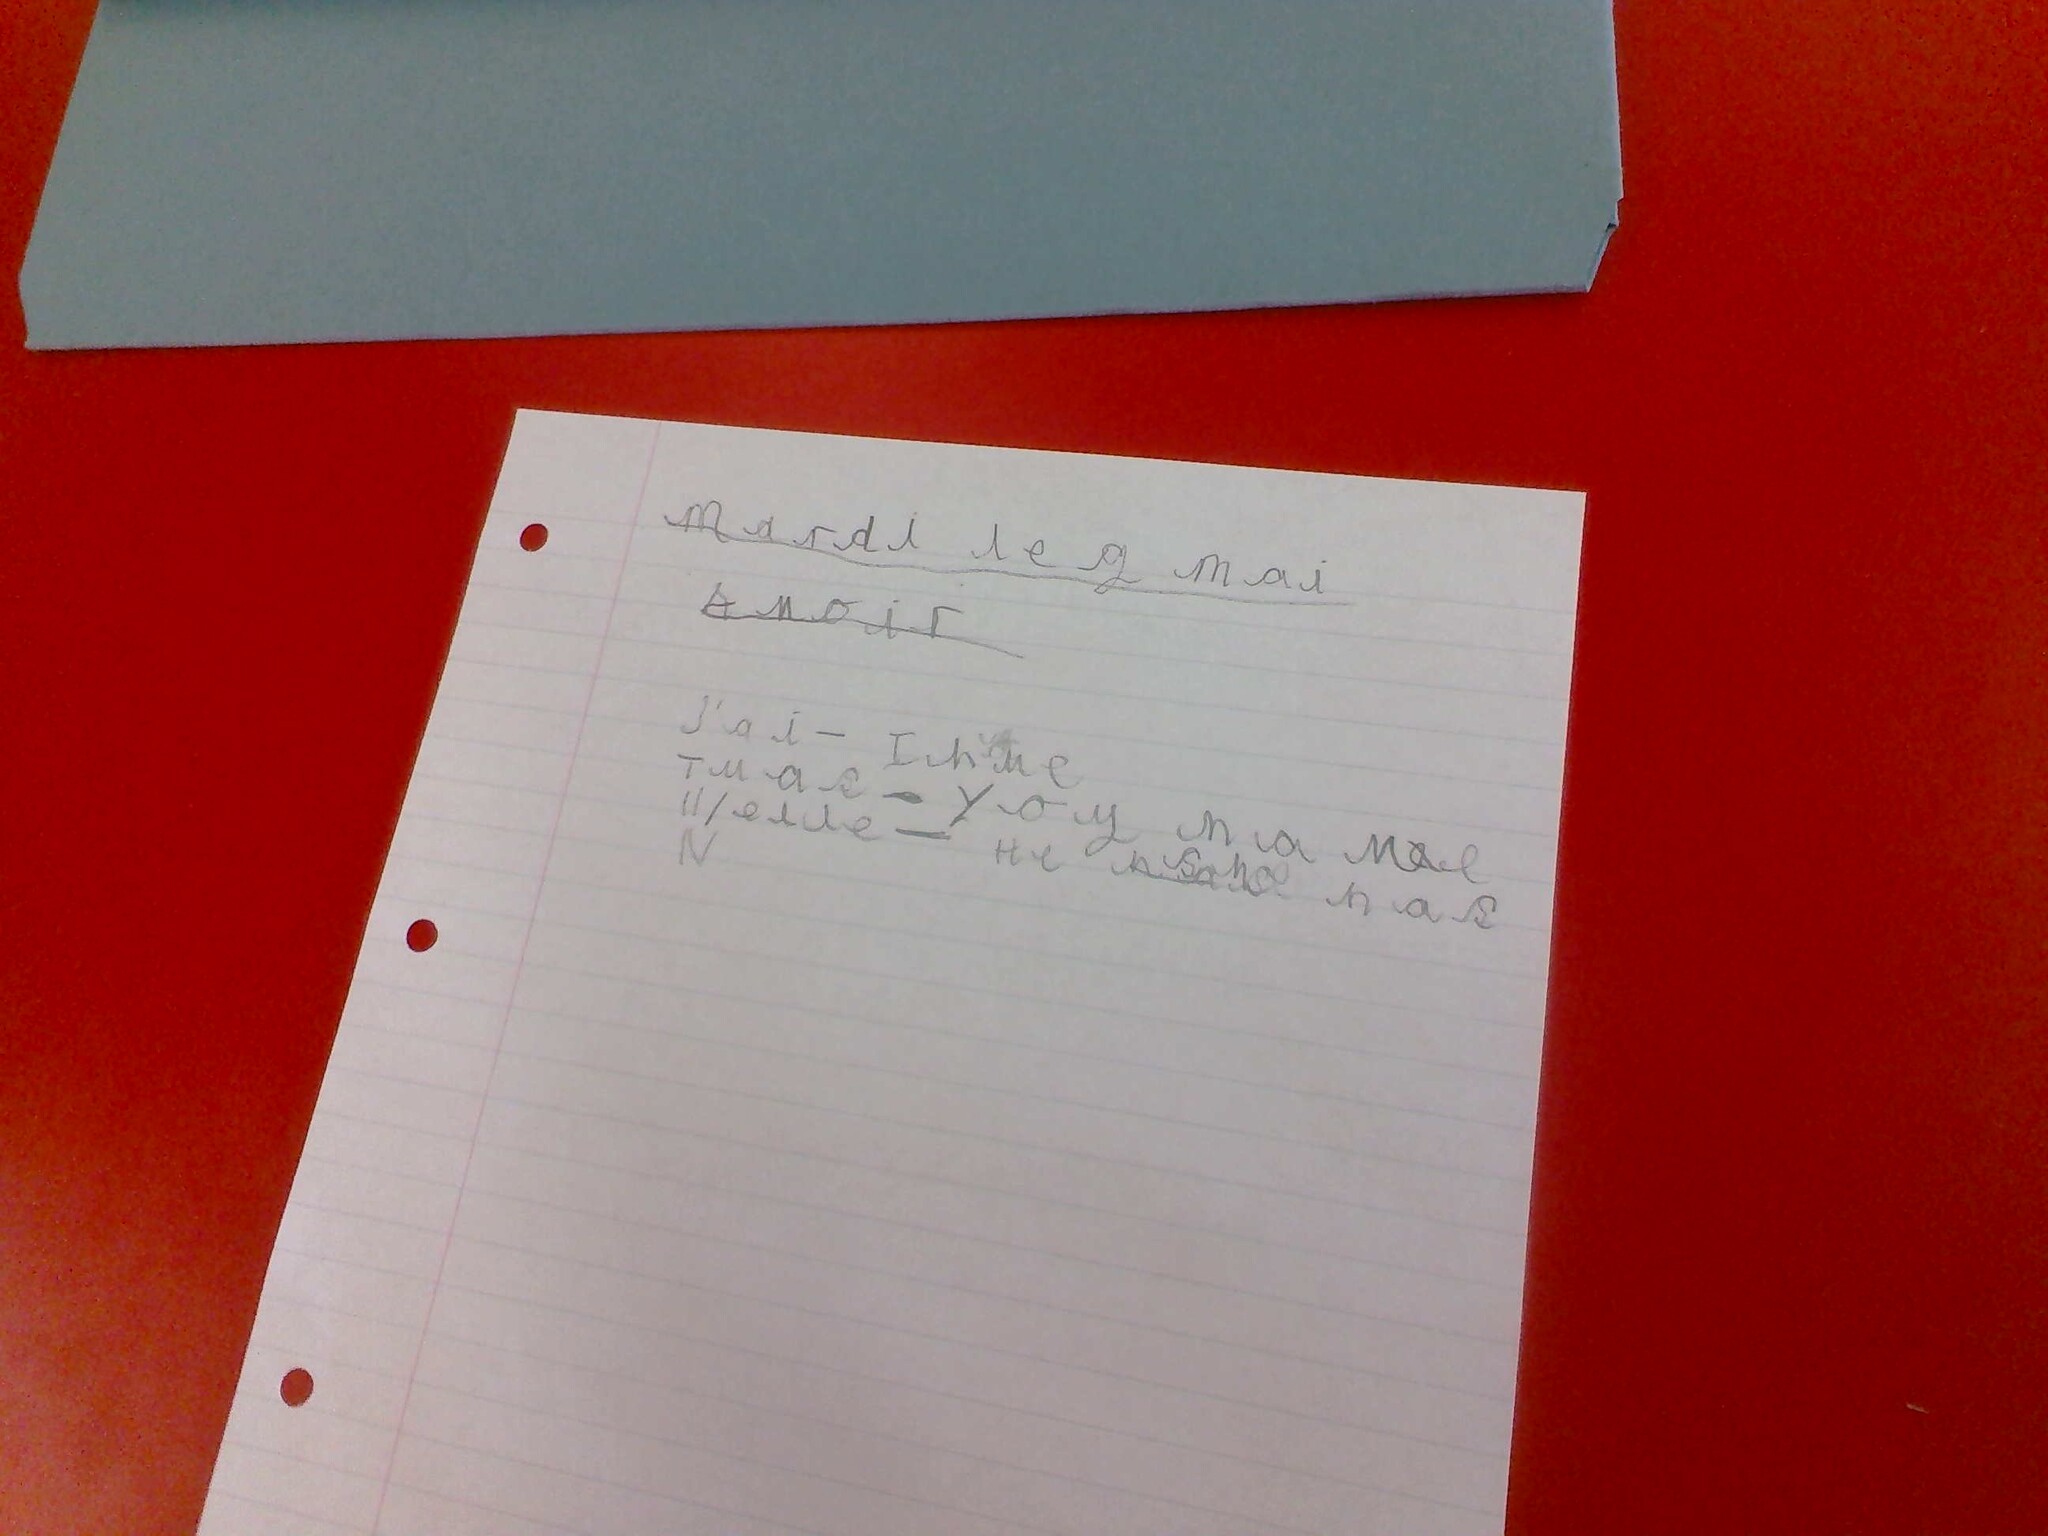 Mardi le 9 mai
Avoir
J'ai - I have
Tu as - You have
Il/elle - He has
N